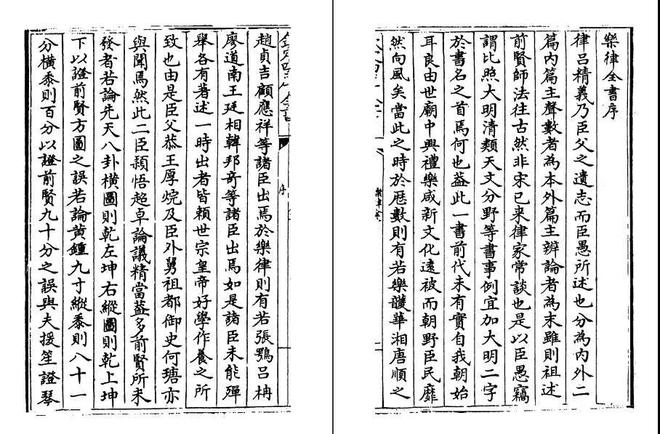 樂律全書序
律呂精義乃臣父之遺志而臣愚所述也分為內外二
篇內篇主聲數者為本外篇主辨論者為末雖則祖述
前賢師法往古然非宋已來律家常談也是以臣愚竊
謂比照大明清類天文分野等書事例宜加大明二字
於書名之首焉何也葢此一書前代未有實自我朝始
耳良由世廟中興禮樂咸新文化遠被而朝野臣民靡
然向風矣當此之時於厯數則有若樂頀華湘唐順之
趙貞吉顧應祥等諸臣出焉於樂律則有若張鶚呂柟
廖道南王廷相韓邦奇等諸臣出焉如是諸臣未能殫
舉各有著述一時出者皆賴世宗皇帝好學作養之所
致也由是臣父恭王厚烷及臣外舅祖都御史何瑭亦
與聞焉然此二臣頴悟超卓論議精當葢多前賢所未
發者若論先天八卦橫圖則乾左坤右縱圖則乾上坤
下以證前賢方圖之誤若論黃鍾九寸縱黍則八十一
分橫黍則百分以證前賢九十分之誤與夫援笙證琴